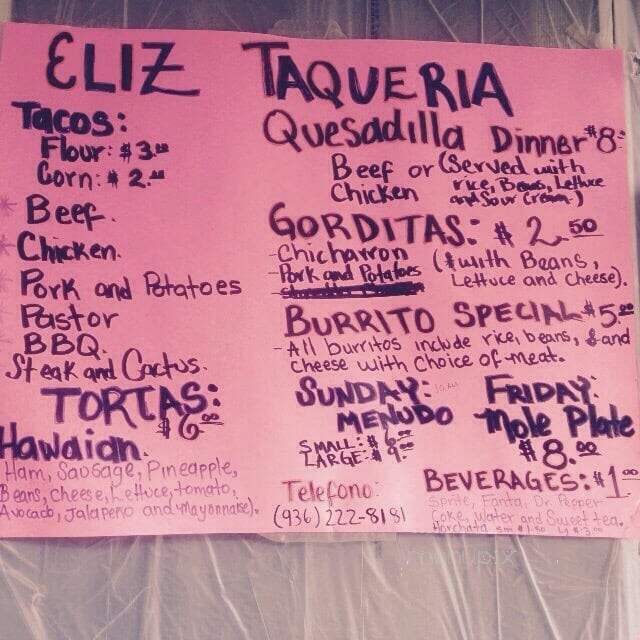 ELIZ TAQUERIA
Tacos:
Flour: $3.00
Corn: $2.00
Beef.
Chicken.
Pork and Potatoes
Pastor
BBQ.
Steak and Cactus.
TORTAS:
$6.00
Hawaian.
Ham, Sausage, Pineapple,
Beans, Cheese, Lettuce, tomato,
Avocado, Jalapeño and Mayonnaise).
Quesadilla Dinner $8.
Beef or (Served with
Chicken rice, Beans, Lettuce
and Sour Cream.)
GORDITAS: $2.50
- Chicharron
- Pork and Potatoes
(with Beans,
Lettuce and Cheese).
BURRITO SPECIAL $5.00
- All burritos include rice, beans, and
cheese with choice of meat.
SUNDAY:
MENUDO
SMALL: $6.00
LARGE: $9.00
FRIDAY:
Mole Plate
$8.00
Telefono:
(936) 222-8181
BEVERAGES: $1.00
Sprite, Fanta, Dr. Pepper
Coke, Water and Sweet tea.
Horchata